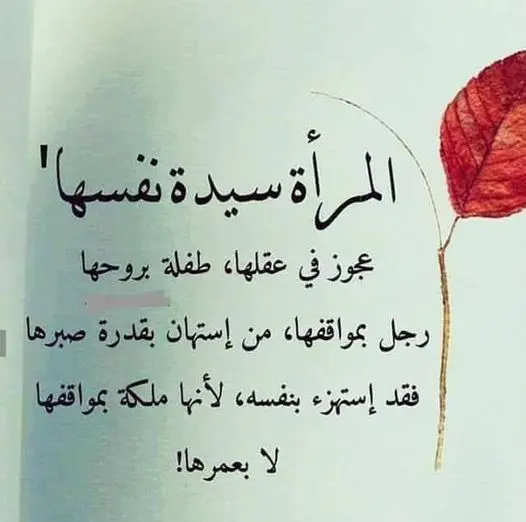 المرأة سيدة نفسها'
عجوز في عقلها، طفلة بروحها
رجل بمواقفها، من إستهان بقدرة صبرها
فقد إستهزء بنفسه، لأنها ملكة بمواقفها
لا بعمرها!